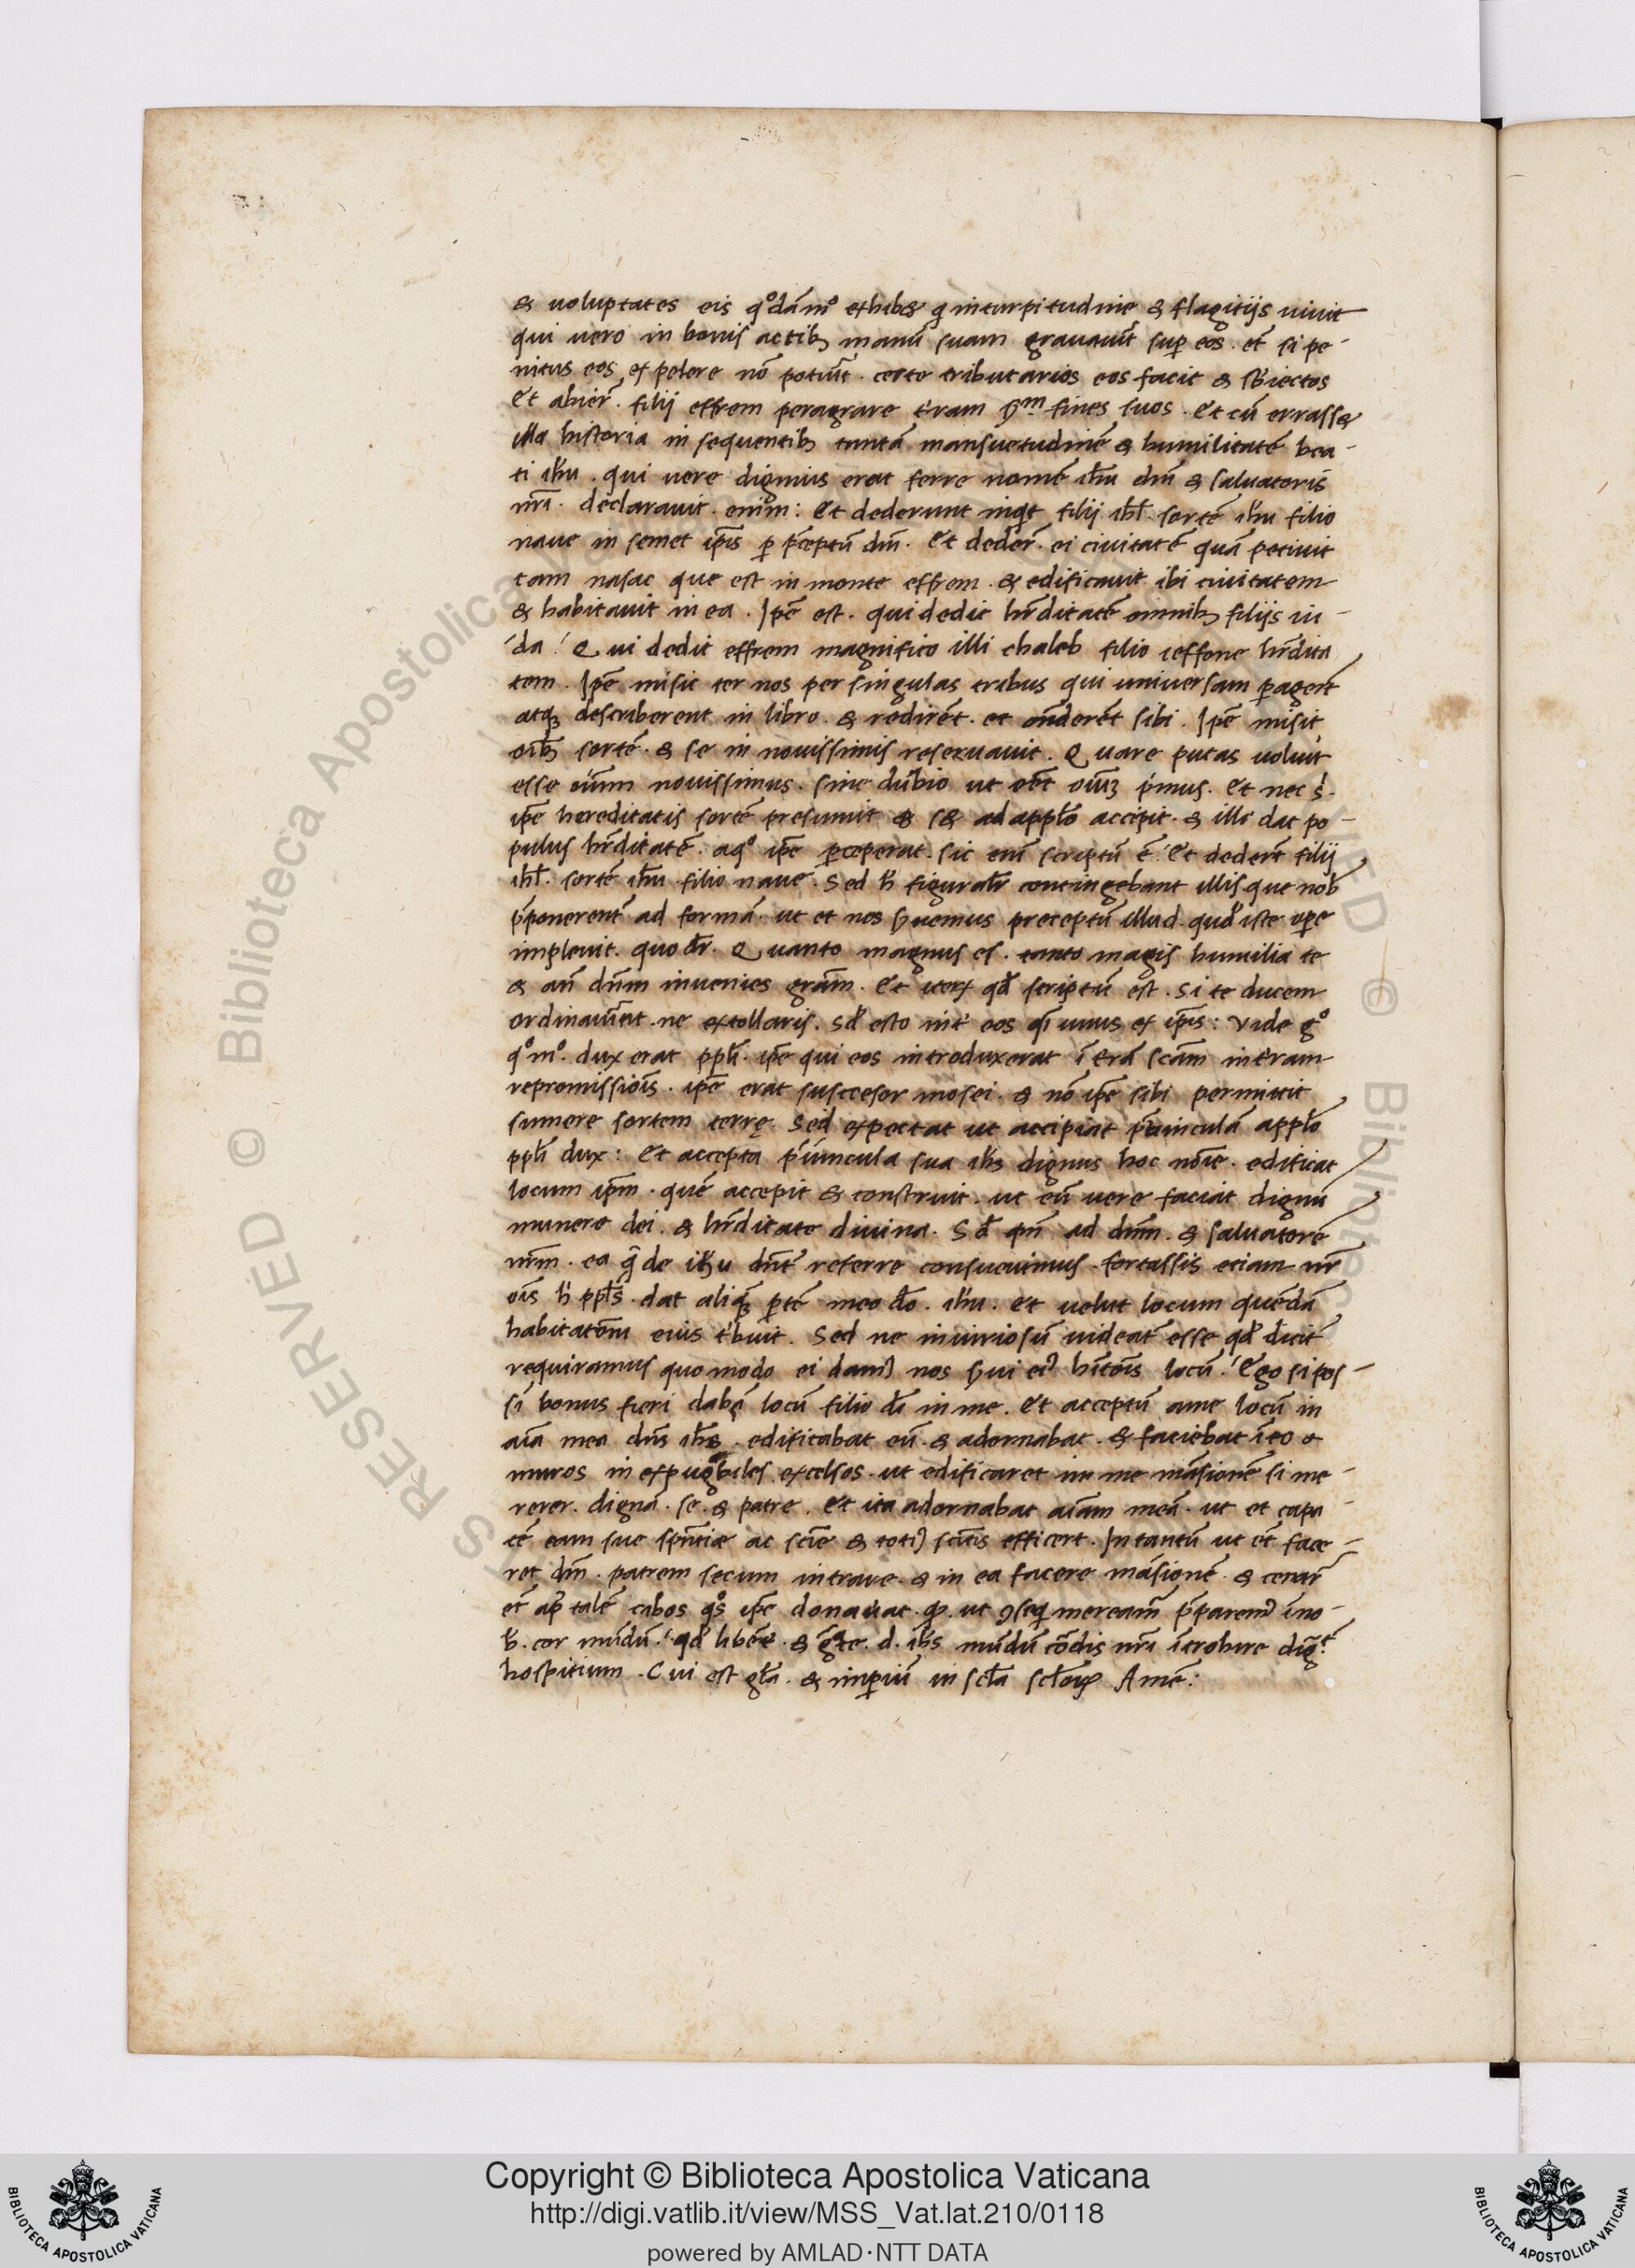 & uoluptates eis q°dãm° exhib& q̃ inturpitudine & flagitijs uiuit
qui uero in bonis actib; manũ suam grauauit̃ sup̃ eos. et̃ si pe-
nitus eos expelere nõ potiũt. certe tributarios eos facit & sb̃iectos
Et abier̃. filij effrem peragrare t̃ram ẜm fines suos. Et cũ errass&
illa historia in sequentib; tantã mansuetudinẽ & humilitatẽ bea-
ti ih̃u. qui uere dignius erat ferre nomẽ ih̃u dñi & saluatoris
nr̃i. declarauit. enim: Et dederunt inq̃t filij ihl̃. sortẽ ih̃u filio
naue in semet ip̃is p̃ p̃ceptũ dñi. Et deder̃. ei ciuitatẽ quã petiuit
tam nasac que est in monte effrem. & edificauit ibi ciuitatem
& habitauit in ea. Ip̃e est. qui dedit hr̃ditatẽ omnib; filijs iu-
da! Qui dedit effrem magnifico illi chaleb filio ieffone hr̃dita
tem. Ip̃e misit ter nos per singulas tribus qui uniuersam p̃ager̃t
atq; describerent in libro. & redirẽt. et oñderẽt sibi. Ip̃e misit
oib̃; sortẽ. & se in nouissimis reseruauit. Quare putas uoluit
esse oium̃ nouissimus. sine dubio ut eẽt oium̃ p̃imus. Et nec s̃.
ip̃e hereditatis sortẽ presumit & s& ad appl̃o accipit. & illi dat po-
pulus hr̃ditatẽ. aq° ip̃e p̃ceperat. sic eni scriptũ ẽ! Et dederũt filij
ihl̃. sortẽ ih̃u filio naue. Sed h̃ figuralr̃ contingebant illis que nob̃
p̃ponerent̃ ad formã. ut et nos ẜuemus preceptũ illud. quod̃ iste op̃e
impleuit. quo dr̃. Quanto magnus es. tanto magis humilia te
& añ dñm inuenies gr̃am. Et iterꝝ qd̃ scriptũ est. Si te ducem
ordinauer̃nt. ne extollaris. sd̃ esto int̃ eos q̃i unus ex ip̃is: Vide g°
q°m°. dux erat ppl̃i. ip̃e qui eos introduxerat ĩ t̃rã scãm in t̃ram
repromissiõis. ip̃e erat successor mosei. & nõ ip̃e sibi permittit
sumere sortem terrę. Sed expectat ut accipiat p̃tiunculã appl̃o
ppl̃i dux: Et accepta p̃tiuncula sua ih̃s dignus hoc noĩe. edificat
locum ip̃m. quẽ accepit & construit. ut eũ uere faciat dignũ
munere dei. & hr̃ditate diuina. Sd̃ qñ ad dñm. & saluatorẽ
nr̃m. ea q̃ de ih̃u dñt referre consueuimus. fortassis etiam nr̃
oĩs h̃ ppl̃s. dat aliq̃ p̃tẽ meo dõ. ih̃u. Et uelut locum quẽdã
habitatõm euis t̃buit. Sed ne iniuriosũ uideat̃ esse qd̃ dicit̃
requiramus quomodo ei damꝰ nos ẜui eiꝰ habitõis locũ! Ego si pos-
sĩ bonus fieri dabã locũ filio dĩ in me. Et acceptũ ame locũ in
aĩa mea dñs ih̃s. edificabat eũ. & adornabat. & faciebat ĩ eo
muros in expugnabiles excelsos. ut edificaret in me mãsionẽ si me-
rerer. dignã. se. & patre. Et ita adornabat aĩam meã. ut et capa-
cẽ eam sue sp̃ntiæ ac scĩe & totiꝰ scitis efficeret. In tantũ ut et̃ face-
ret dm̃. patrem secum intrare. & in ea facere mãsionẽ. & cenar̃
et̃ ap̃ talẽ cibos q°s ip̃e donauat. ꝙ. ut ꝯseq̃ mereamr̃ p̃paremꝰ ĩ no-
b̃. cor mũdũ! qd̃ libẽt̃. d. ih̃s mũdũ cõdis nr̃i ĩtrobire dig̃t
hospitium. Cui est gl̃a. & inp̃iũ in scl̃a scl̃oꝝ Amẽ:
Copyright © Biblioteca Apostolica Vaticana
http://digi.vatlib.it/view/MSS_Vat.lat.210/0118
powered by AMLAD·NTT DATA